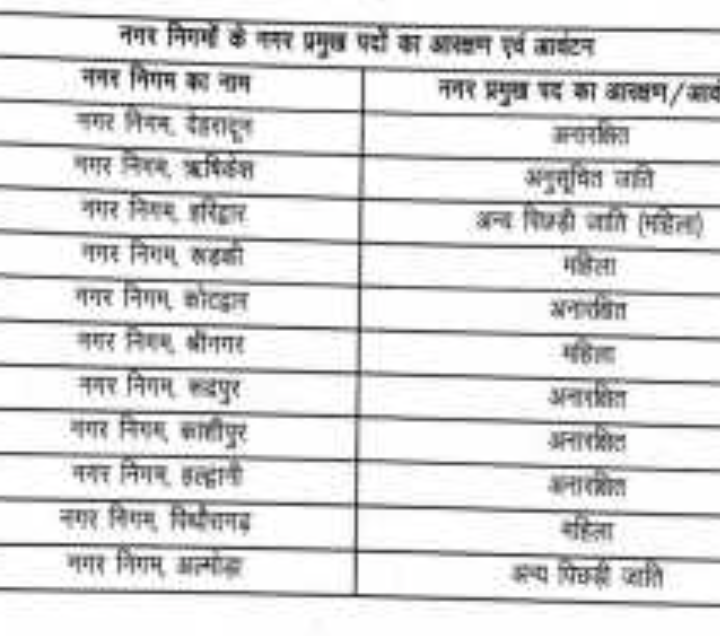 नगर निगमों के नगर प्रमुख पदों का आरक्षण एवं आवंटन
नगर निगम का नाम नगर प्रमुख पद का आरक्षण/आवं
नगर निगम, देहरादून अनारक्षित
नगर निगम, ऋषिकेश अनुसूचित जाति
नगर निगम, हरिद्वार अन्य पिछड़ी जाति (महिला)
नगर निगम, रूड़की महिला
नगर निगम, कोटद्वार अनारक्षित
नगर निगम, श्रीनगर महिला
नगर निगम, रूद्रपुर अनारक्षित
नगर निगम, काशीपुर अनारक्षित
नगर निगम, हल्द्वानी अनारक्षित
नगर निगम, पिथौरागढ़ महिला
नगर निगम, अल्मोड़ा अन्य पिछड़ी जाति